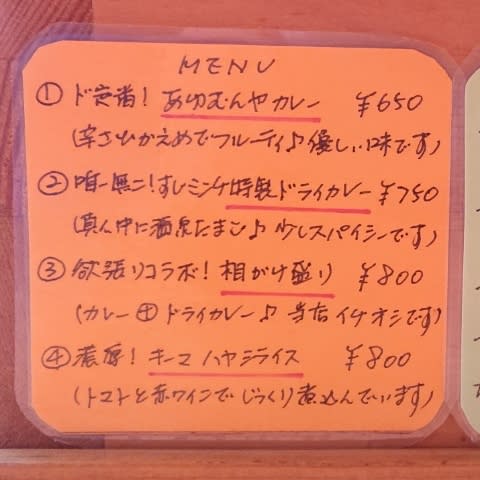 MENU
① ド定番! あゆむんやカレー ¥650
(辛さひかえめでフルーティ♪優しい味です)
② 唯一無二!すレミンチ特製ドライカレー ¥750
(真ん中に温泉たまご♪ 少しスパイシーです)
③ 欲張りコラボ! 相がけ盛り ¥800
(カレー ⊕ ドライカレー♪ 当店イチオシです)
④ 濃厚! キーマハヤシライス ¥800
(トマトと赤ワインでじっくり煮込んでいます)